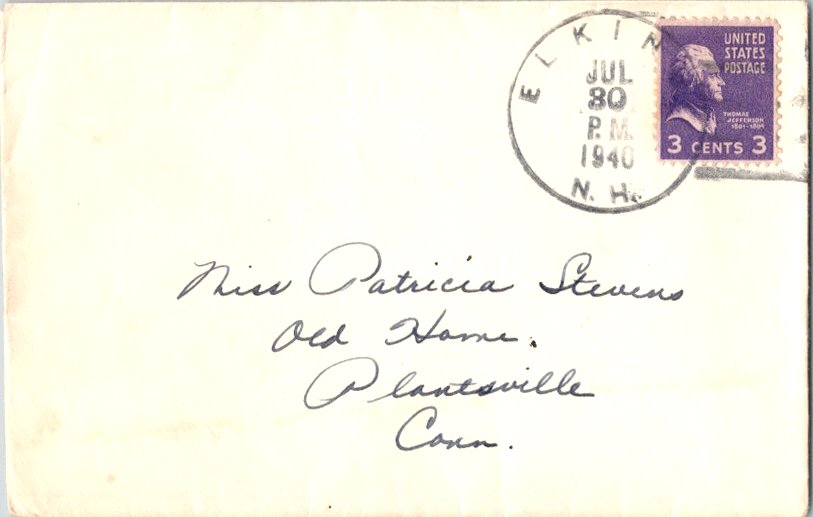 ELKIN
JUL
30
P.M.
1940
N. H.
UNITED
STATES
POSTAGE
THOMAS
JEFFERSON
1801-1809
3 CENTS 3
Miss Patricia Stevens
Old Home.
Plantsville
Conn.